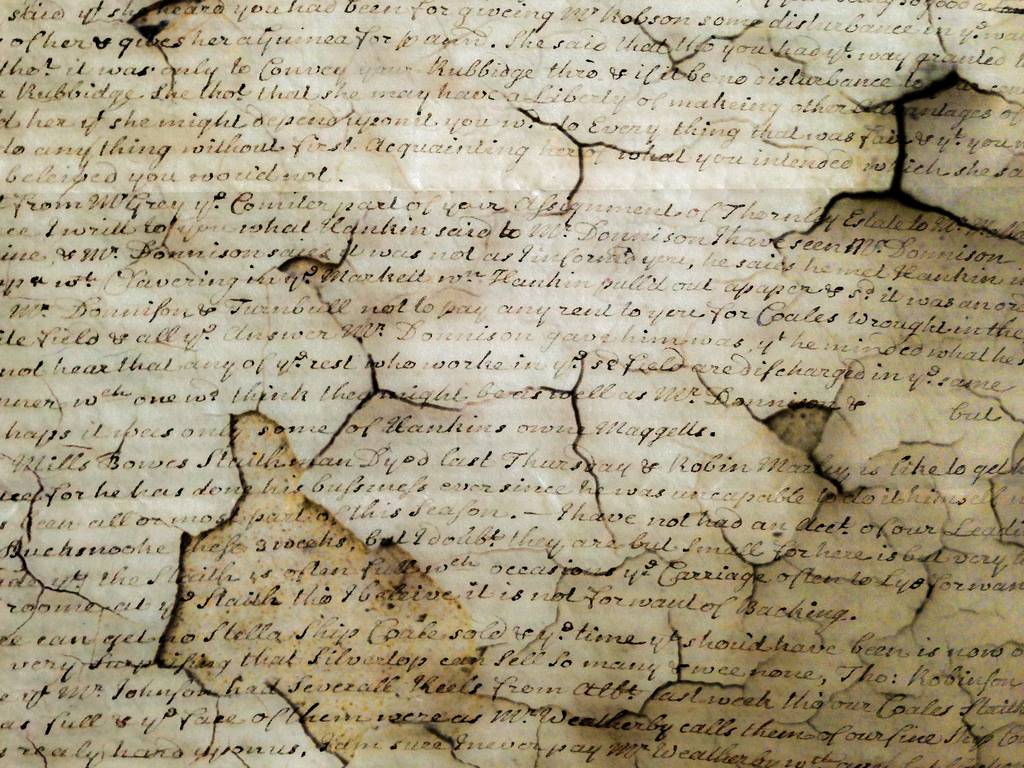 said yt she heard you had been for giveing Mr Robson some disturbance in ye
of her & gives her a Guinea for hand. She said that tho you had ye way granted
thot it was only to Convey your Rubbidge thro & if it be no disturbance to
Rubbidge She thot that she may have a Liberty of makeing other advantages of
her yt she might depend upon it you wd do Every thing that was fair & yt you
do any thing without first Acquainting her of what you intended which she
beleived you would not.
from Mr Grey ye Counterpart of your Assignment of Thornley Estate to Mr
I writt to you what Hankin said to Mr Donnison I have seen Mr Donnison
& Mr Donnison saies it was not as I informed you, he saies he met Hankin
wt Clavering in ye Markett wn Hankin pulld out a paper & sd it was an
Mr Donnison & Turnbull not to pay any rent to you for Coales wrought in the
field & all ye Answer Mr Donnison gave him was, yt he minded what he
not hear that any of ye rest who worke in ye sd field are discharged in ye same
wch one wd think they might be as well as Mr Donnison & but
haps it was only some of Hankins owne Maggetts.
Mills Bowes Staithman Dyed last Thursday & Robin is like to get
for he has done his bussiness ever since he was uncapable to do it himself
been all or most part of this Season. - I have not had an Acct of our
these 3 weeks, but I doubt they are but Small for here is but very
yt the Staith is often full wch occasions ye Carriage often to Lye for want
roome at ye Staith tho I beleive it is not for want of Backing.
can get no Stella Ship Coale sold & ye time yt should have been is now
very Surprising that Silvertop can Sell so many & wee none, Tho: Robinson
yt Mr Johnson had severall Keels from last week tho our Coales Staith
as full & ye face of them were as Mr Weatherby calls them of our fine Ship
realy hard upon us, I am sure I never pay Mr Weatherby wth any